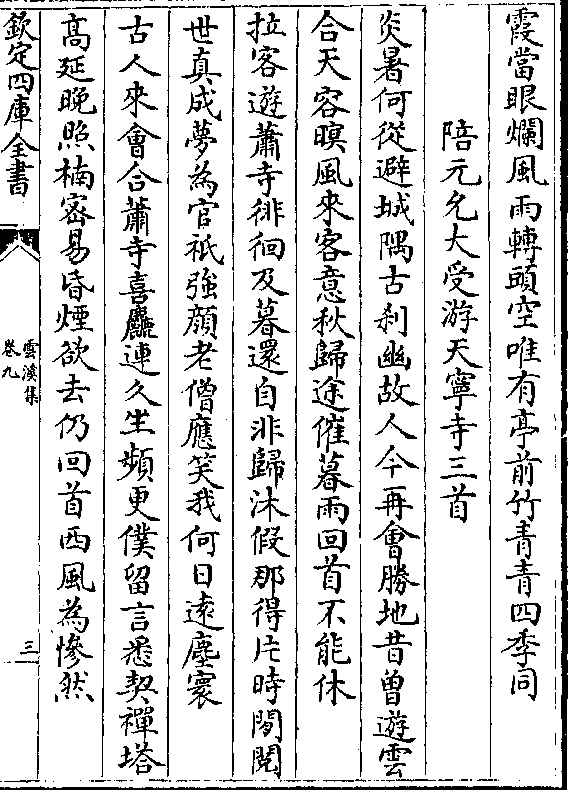 霞當眼爛風雨轉頭空唯有亭前竹青青四季同
陪元允大受游天寧寺三首
炎暑何從避城隅古刹幽故人今再會勝地昔曾遊雲
合天容暝風來客意秋歸途催暮雨回首不能休
拉客遊蕭寺徘徊及暮還自非歸沐假那得片時閒閱
世真成夢為官祇強顔老僧應笑我何日遠塵寰
古人來會合蕭寺喜麤連久坐頻更僕留言悉契禪塔
高延晚照楠密易昏煙欲去仍回首西風為慘然
欽定四庫全書
雲溪集
卷九
三